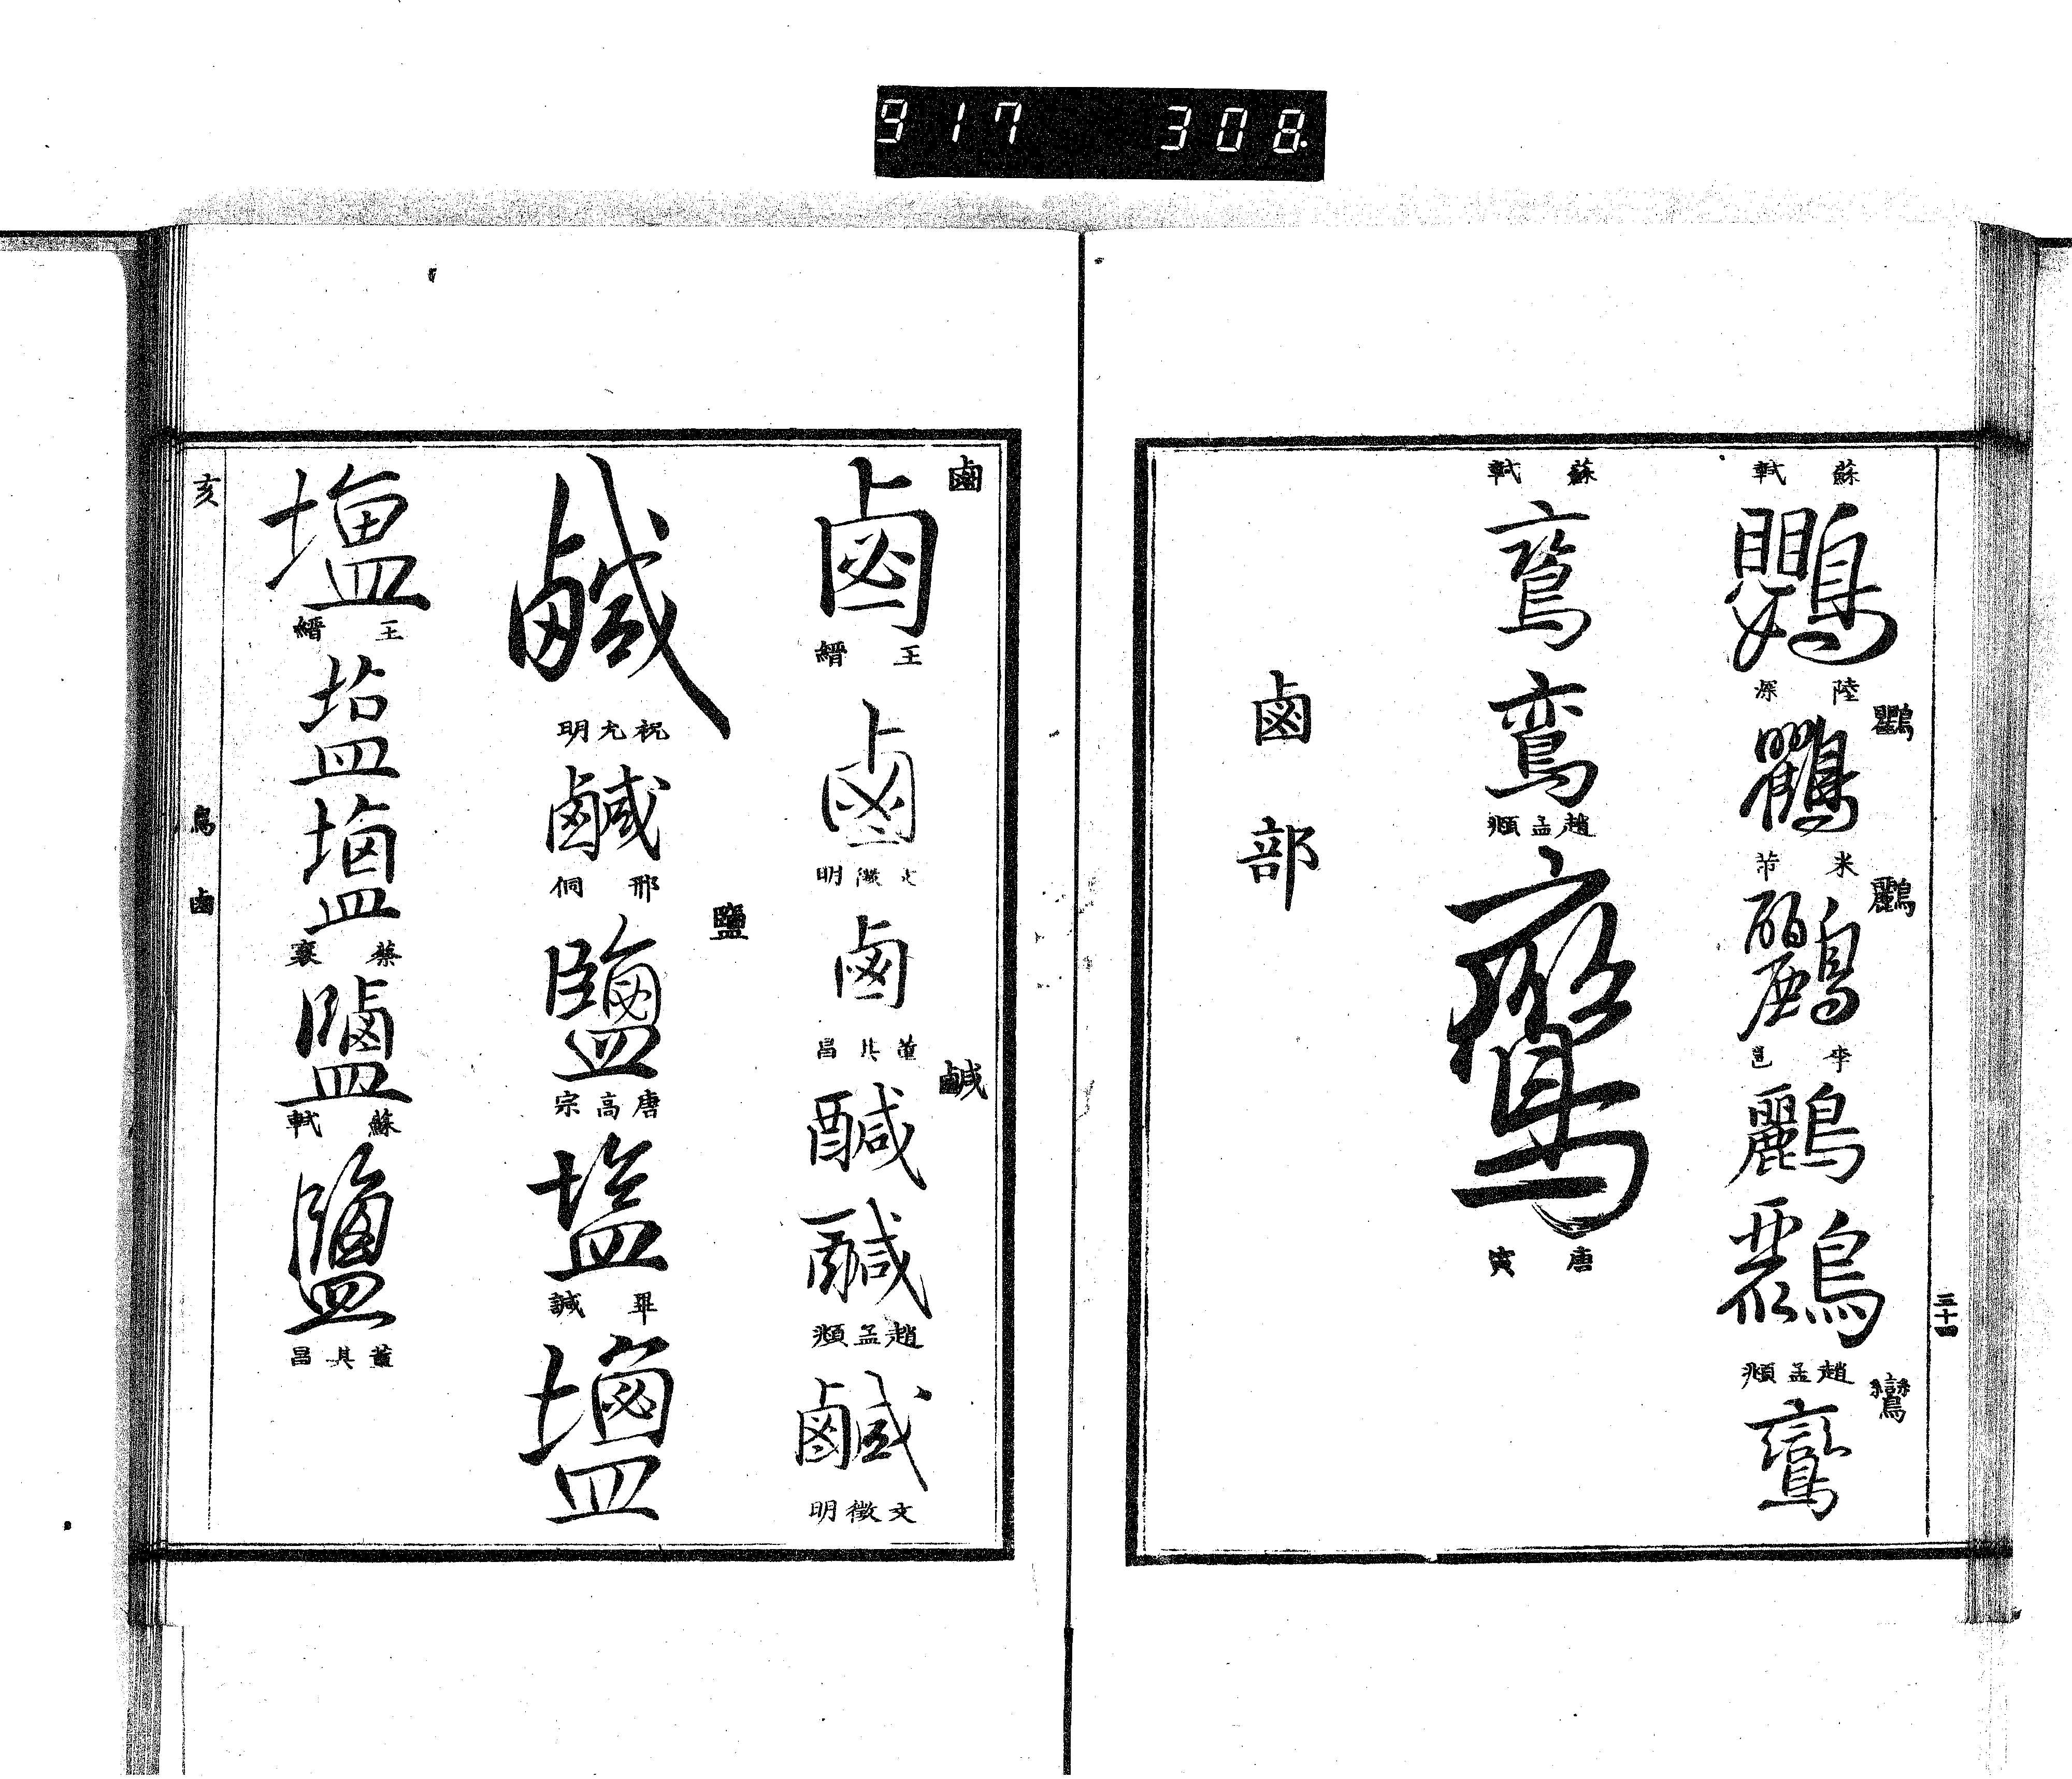 917 308
三十一
鸚
蘇軾
鸜
鸜
陸深
鸝
鸝
米芾
鸝
李邕
鸝
鸝
趙孟頫
鸞
鸞
蘇軾
鸞
鸞
趙孟頫
鸞
唐寅
鹵部
鹵
鹵
王縉
鹵
文徵明
鹵
董其昌
鹹
鹹
鹹
趙孟頫
鹹
文徵明
鹹
祝允明
鹹
邢侗
鹽
鹽
唐高宗
塩
畢諴
塩
塩
王縉
塩
塩
蔡襄
鹽
蘇軾
鹽
董其昌
亥 鳥 鹵